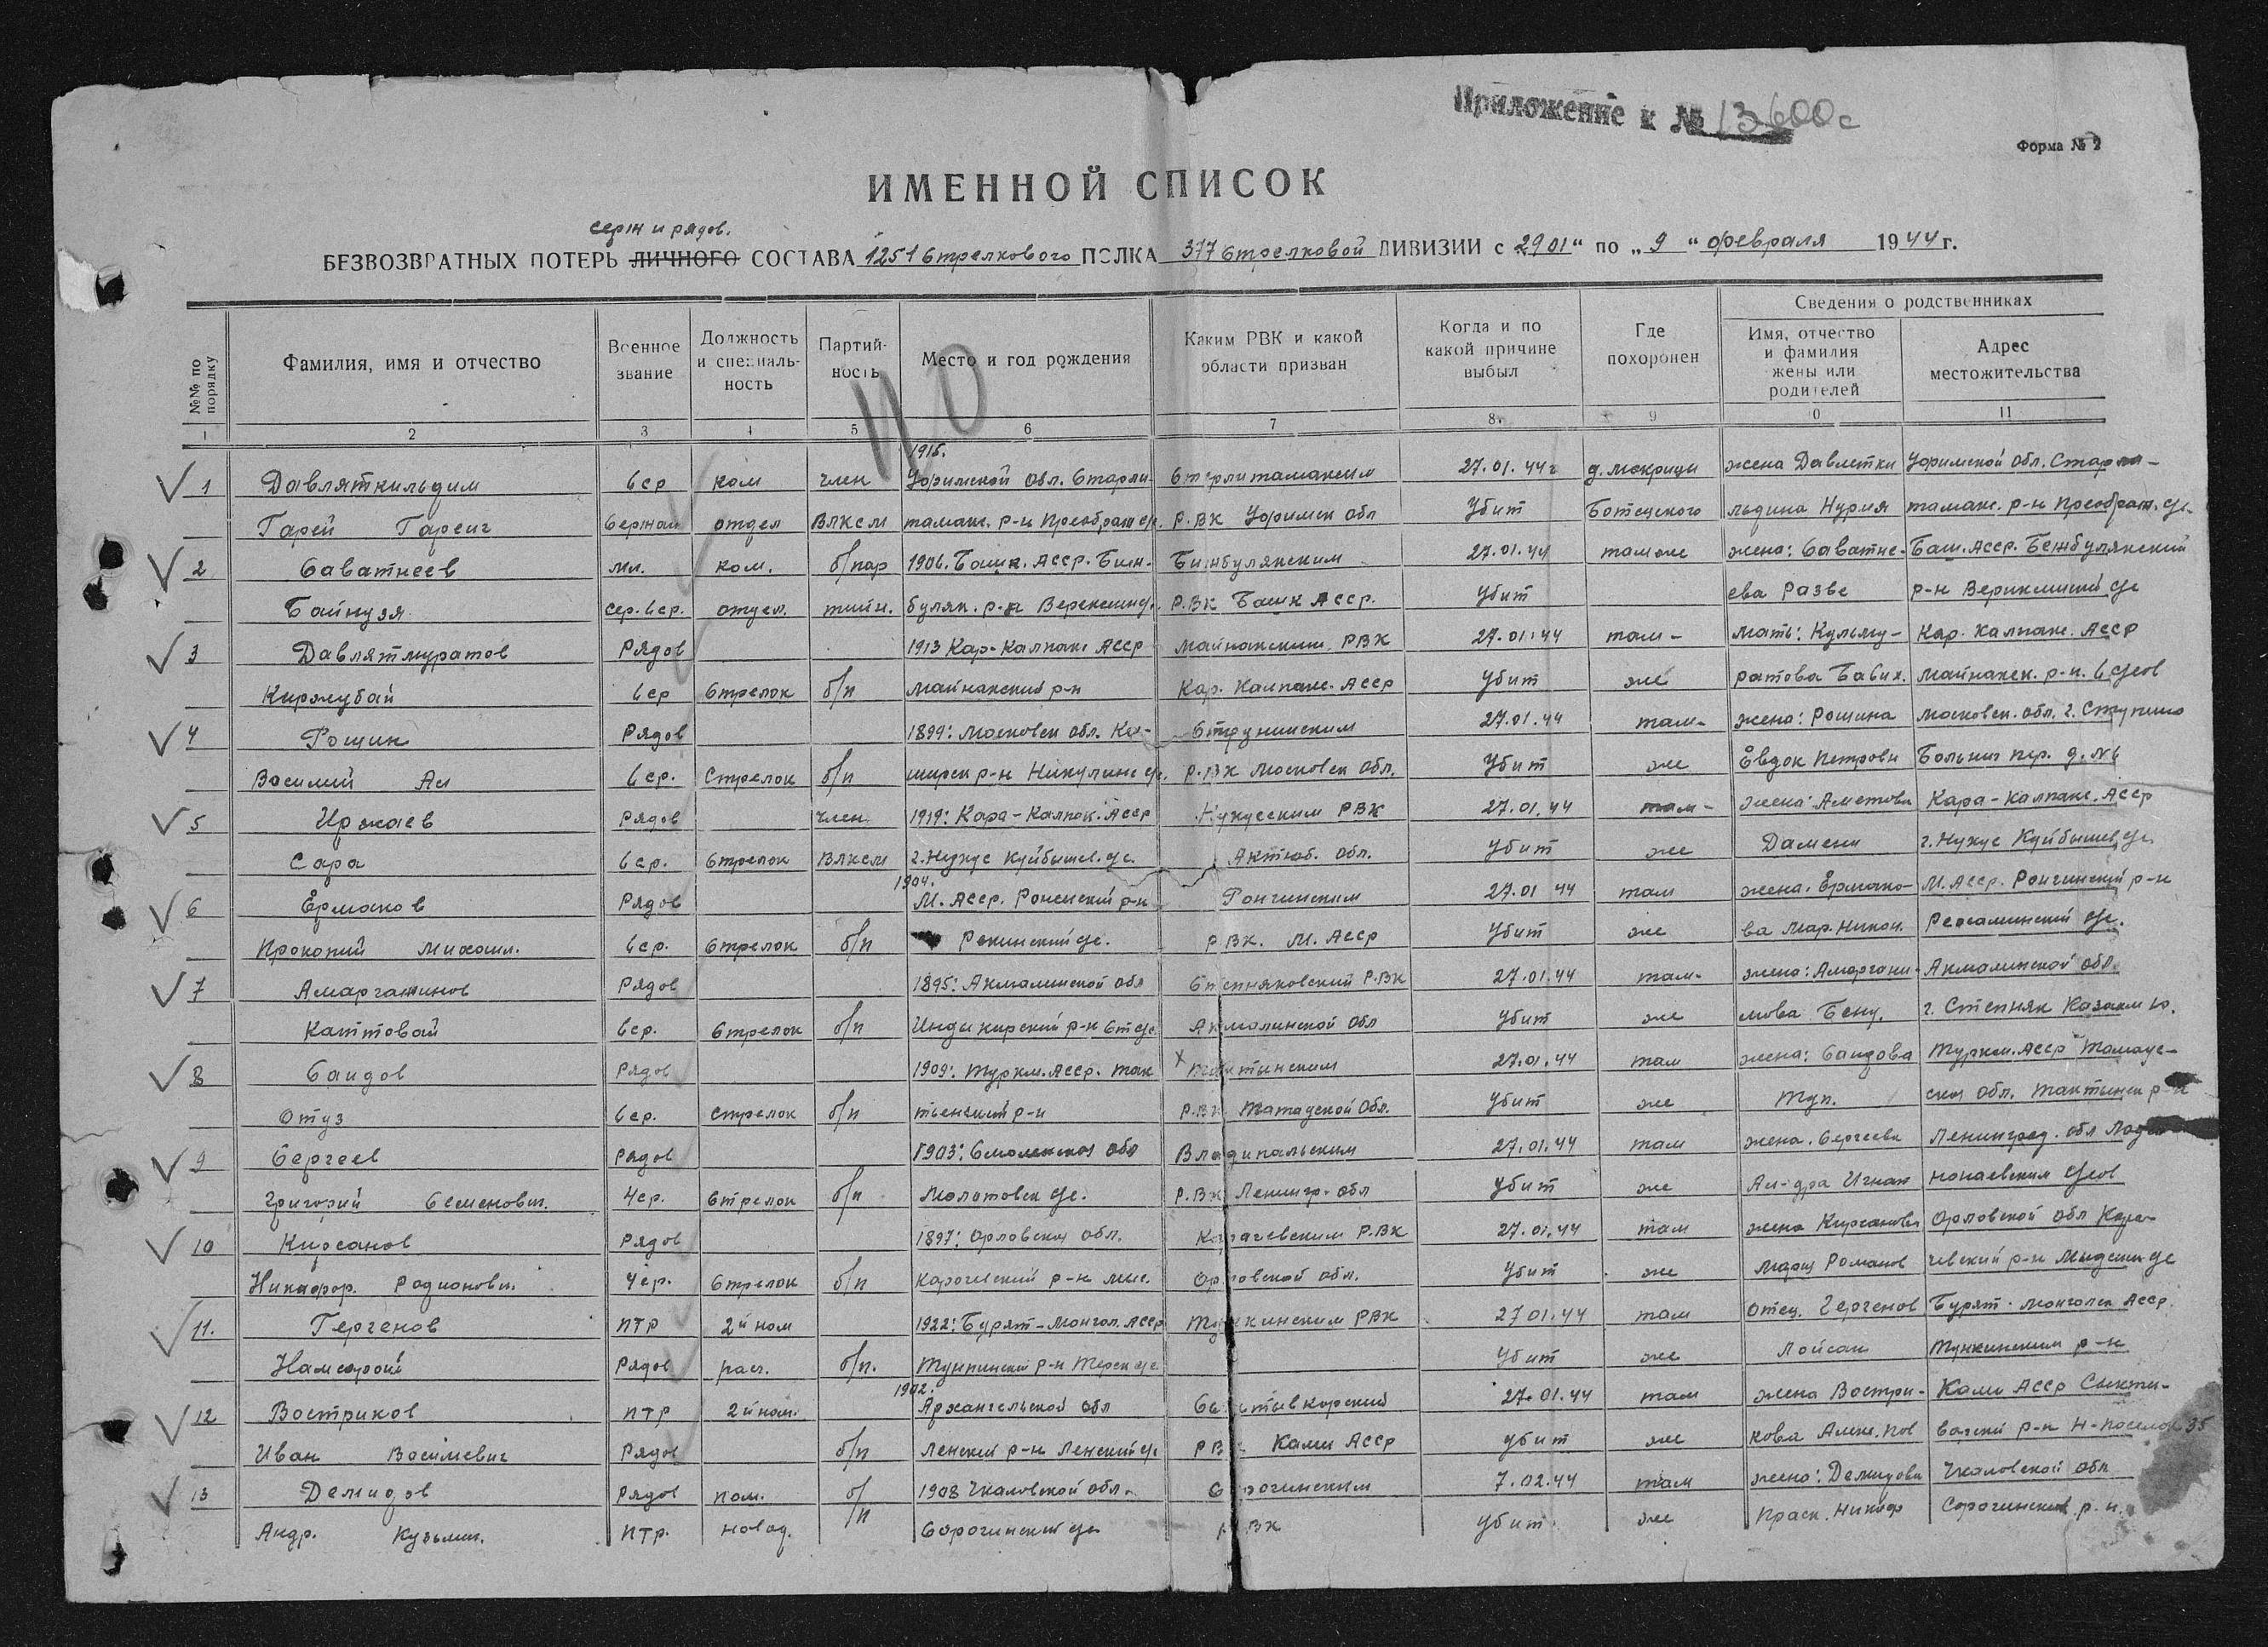 Приложение к № 13600с
Форма № 2
ИМЕННОЙ СПИСОК
серж и рядов.
БЕЗВОЗВРАТНЫХ ПОТЕРЬ ЛИЧНОГО СОСТАВА 1251 Стрелкового ПОЛКА 377 Стрелковой ДИВИЗИИ с 29 01 " по „ 9 " февраля 1944 г.
Сведения о родственниках
№№ по порядку
Фамилия, имя и отчество
Военное звание
Должность и специальность
Партийность
Место и год рождения
Каким РВК и какой области призван
Когда и по какой причине выбыл
Где похоронен
Имя, отчество и фамилия жены или родителей
Адрес местожительства
1 2 3 4 5 6 7 8. 9 0 11
ПО
1915.
1 Давляткильдим сер ком член Уфимской обл. Старли- Стерлитамаксим 27.01.44г д. Мокрицы жена Давлетки Уфимской обл. Старли-
Гарей Гареич Сержан отдел ВЛКСМ тамак. р-н Преображ с/с. Р.ВК Уфимск обл Убит Ботецкого льдина Нурия тамак. р-н Преображ. с/с.
2 Саватнеев мл. ком. б/пар 1906. Башк. Асср. Биж- Бижбулякским 27.01.44 там же жена: Саватне- Баш. Асср. Бежбулякский
Байгузя сер. сер. отдел. тийн. буляк. р-н Р.ВК Башк Асср. Убит ева Разве р-н
3 Давлятмуратов Рядов 1913 Кар-Калпак Асср Майнакским РВК 27.01.44 там- мать: Кульму- Кар. Калпак. Асср
Киржубай сер Стрелок б/п Майнакский р-н Кар. Калпак. Асср Убит же ратова Бабих. Майнакск. р-н.
4 Рощин Рядов 1899: Московск обл. Ка- Струнинским 27.01.44 там- жена: Рощина Московск. обл. г. Ступино
Василий Ал сер. Стрелок б/п ширск р-н Никулинс с/с. Р.ВК Московск обл. Убит же Евдок Петровн Больнич пер. д. №6
5 Иржаев Рядов член 1919: Кара-Калпак. Асср Нукусским РВК 27.01.44 там- жена Аметова Кара-Калпак. Асср
Сара сер. Стрелок ВЛКСМ г. Нукус Куйбышев. с/с. Актюб. обл. Убит же Дамени г. Нукус Куйбышев с/с
1904.
6 Ермаков Рядов М. Асср. Ронгский р-н Ронгинским 27.01 44 там жена. Ермако- М. Асср. Ронгинский р-н
Прокопий Михаил. сер. Стрелок б/п с/с. РВК. М. Асср Убит же ва Мар. Никон. с/с.
7 Амаргажинов Рядов 1895: Акмалинской обл Степняковский Р.ВК 27.01.44 там- жена: Амаргажи- Акмалинской обл.
Каттовай сер. Стрелок б/п р-н Акмалинской обл Убит же нова Бену. г. Степняк
8 Саидов Рядов 1909: Туркм. Асср. Так Тактынским 27.01.44 там жена: Саидова Туркм. Асср Ташаус-
Отуз сер. Стрелок б/п р-н Р.ВК обл. Убит же Туп. ской обл. Тактынск р-н
9 Сергеев Рядов 1903: Смоленской обл 27.01.44 там жена. Сергеева Ленинград. обл
Григорий Семенович. Чер. Стрелок б/п Молотовск с/с. Р.ВК Ленингр. обл Убит же Ал-дра Игнат
10 Кирсанов Рядов 1897: Орловской обл. Карачевским Р.ВК 27.01.44 там жена Кирсанова Орловской обл Кара-
Никифор. Родионович. Чер. Стрелок б/п Карачевский р-н Мыл. Орловской обл. Убит же Мария Романов чевский р-н с/с
11. Гергенов ПТР 2й ном 1922: Бурят-Монгол. Асср Тункинским РВК 27 01.44 там Отец. Гергенов Бурят-Монгольск Асср.
Намсарай Рядов расч. б/п. Тункинский р-н с/с Убит же Лойсан Тункинским р-н
1902.
12 Востриков ПТР 2й ном. Архангельской обл Сыктывкарский 27.01.44 там жена Востри- Коми Асср Сыкты-
Иван Васильевич Рядов б/п Ленский р-н Ленский с/с РВК Коми Асср Убит же кова р-н Н-поселок 35
13 Демидов Рядов пом. б/п 1908 Чкаловской обл. Сорочинским 7.02.44 там жена: Демидова Чкаловской обл
Андр. Кузьмич. ПТР. навод. Сорочинский с/с РВК Убит. же Праск. Никиф Сорочинский р. н.